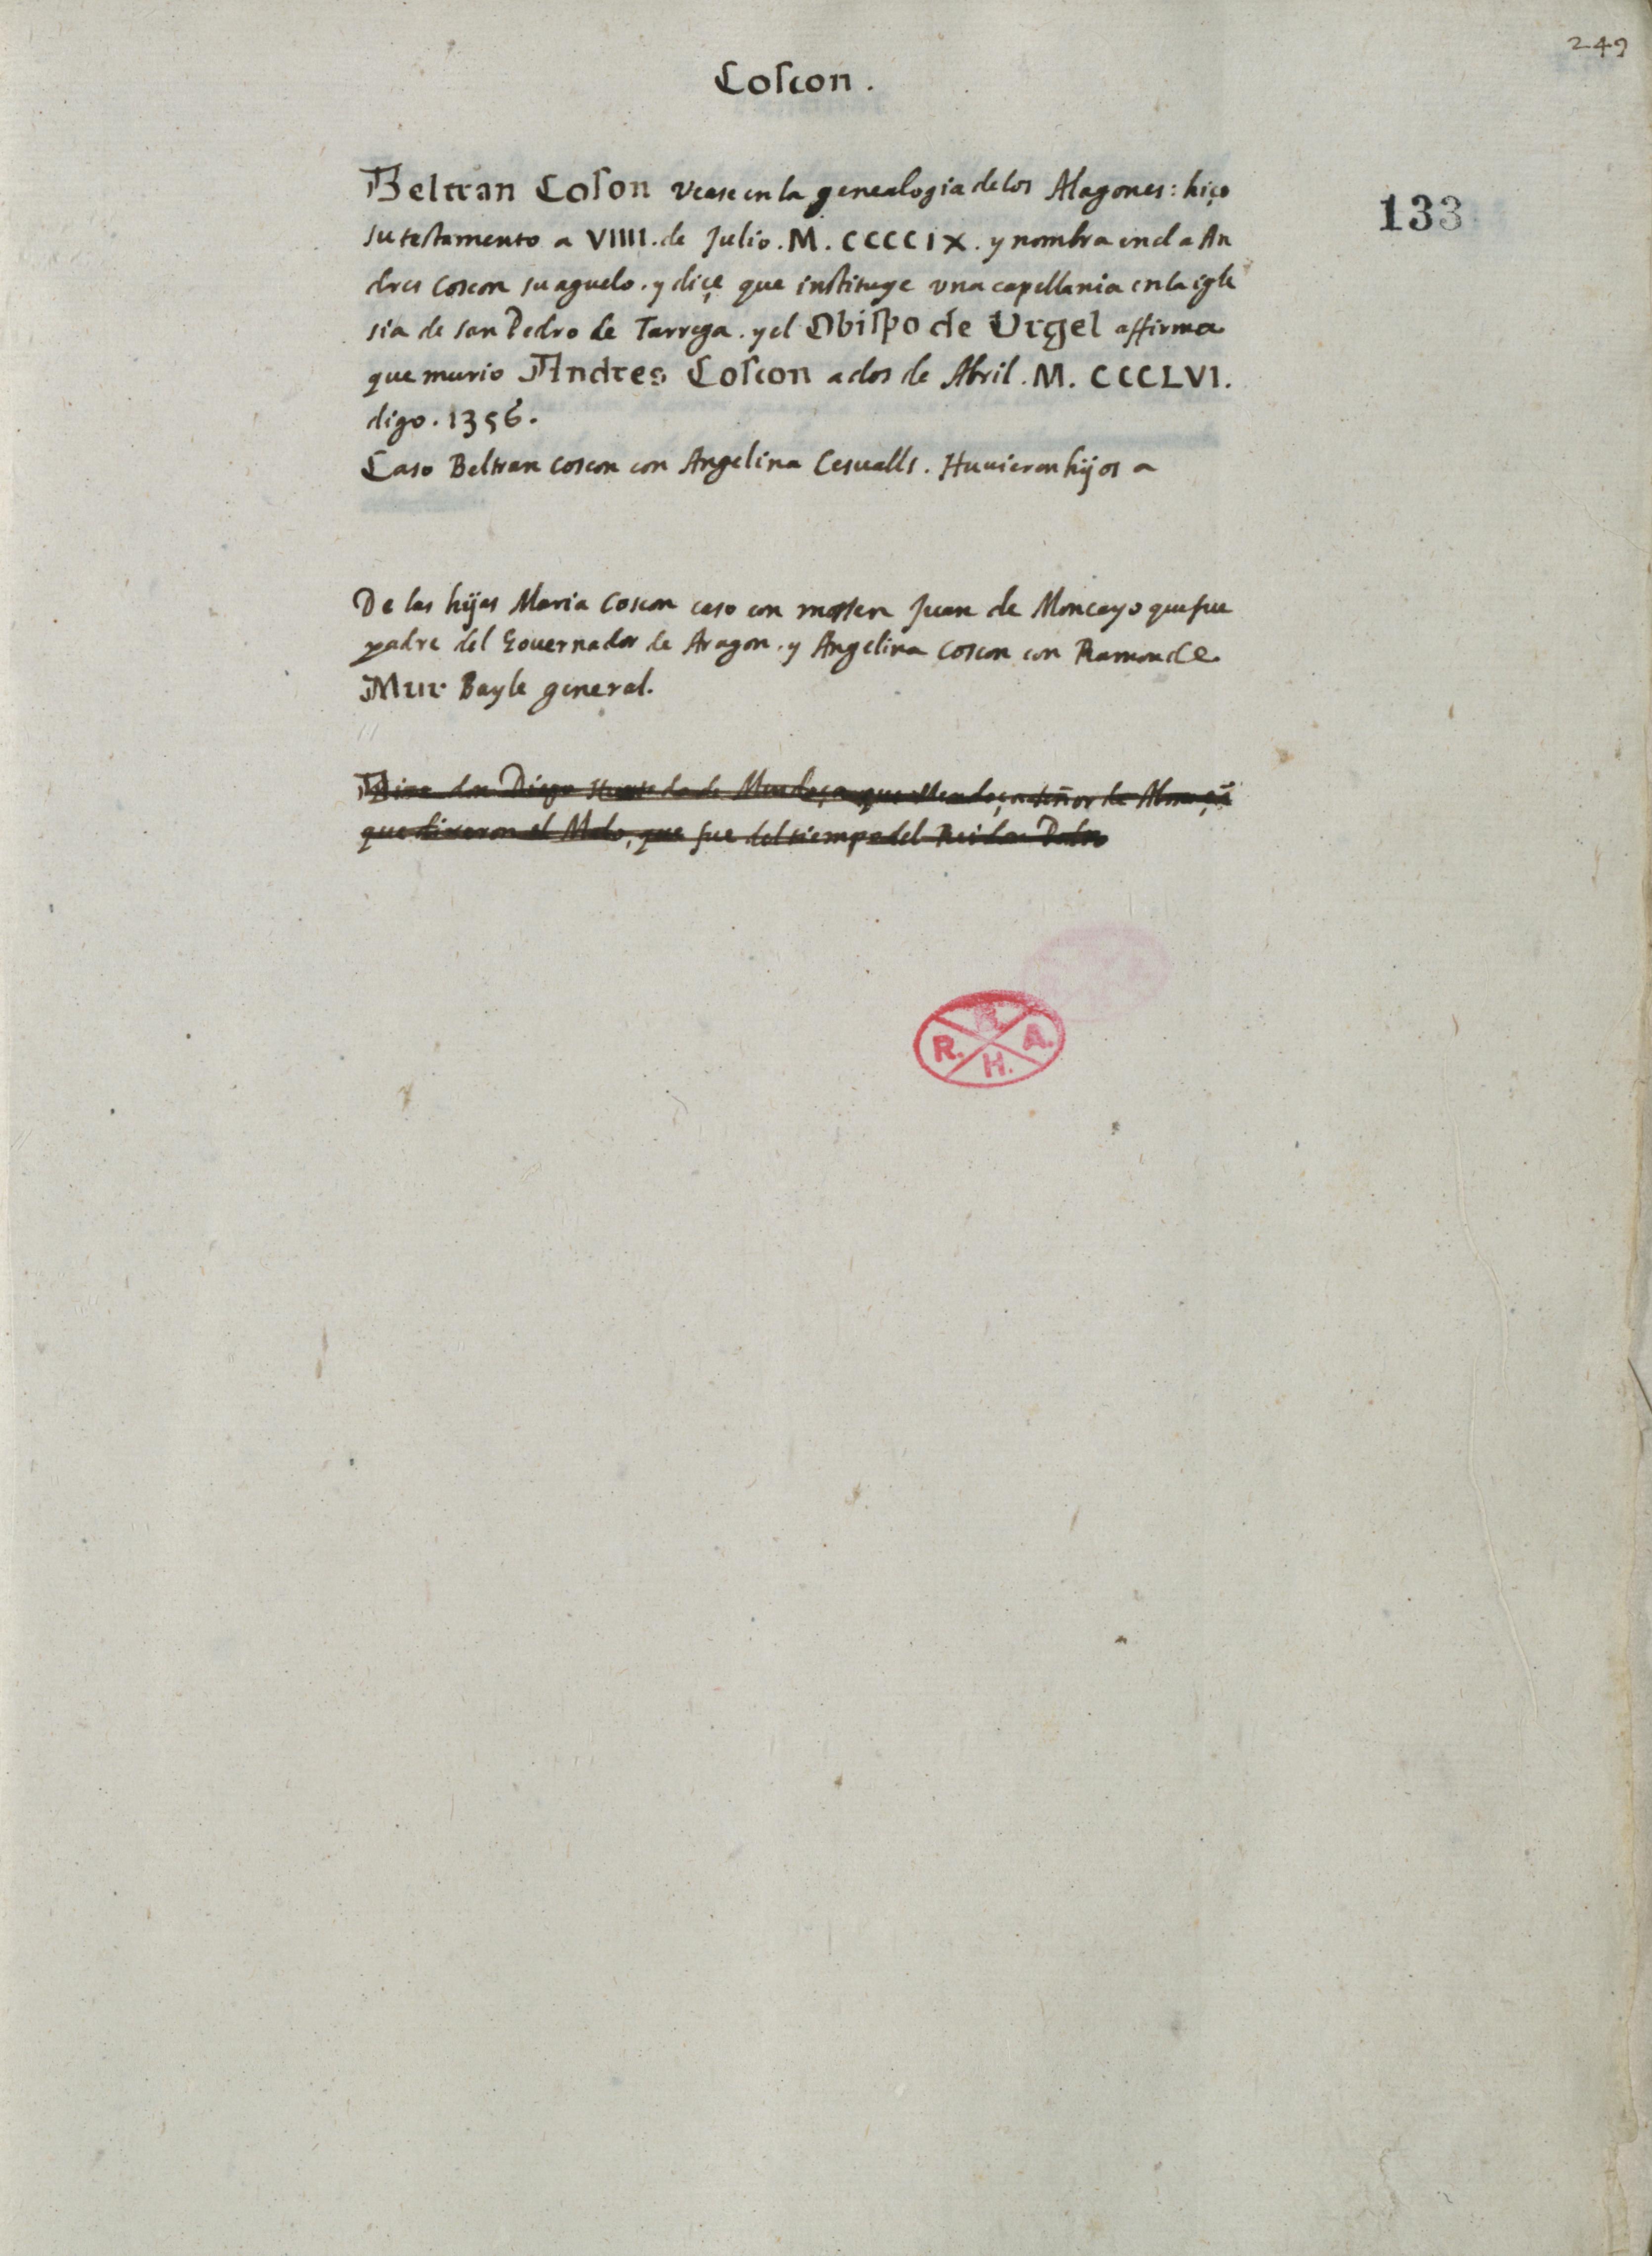 249
Coscon.
133
Beltran Coson vease en la genealogia de los Alagones: hiço
su testamento a VIIII. de Julio. M. CCCCIX. y nombra en el a An
dres Coscon su aguelo. y diçe que instituye una capellania en la igle
sia de san Pedro de Tarrega. y el Obispo de Urgel affirma
que murio Andres Coscon a dos de Abril. M. CCCLVI.
digo. 1356.
Caso Beltran Coscon con Angelina Cesualls. Huuieron hijos a
De las hijas Maria Coscon caso con mossen Juan de Moncayo que fue
padre del Gouernador de Aragon. y Angelina Coscon con Ramon de
Mur Bayle general.
don Diego de Mendoça que Mendoça señor de
que dixeron el que fue del tiempo del Rei don Pedro
R. B. A. H.